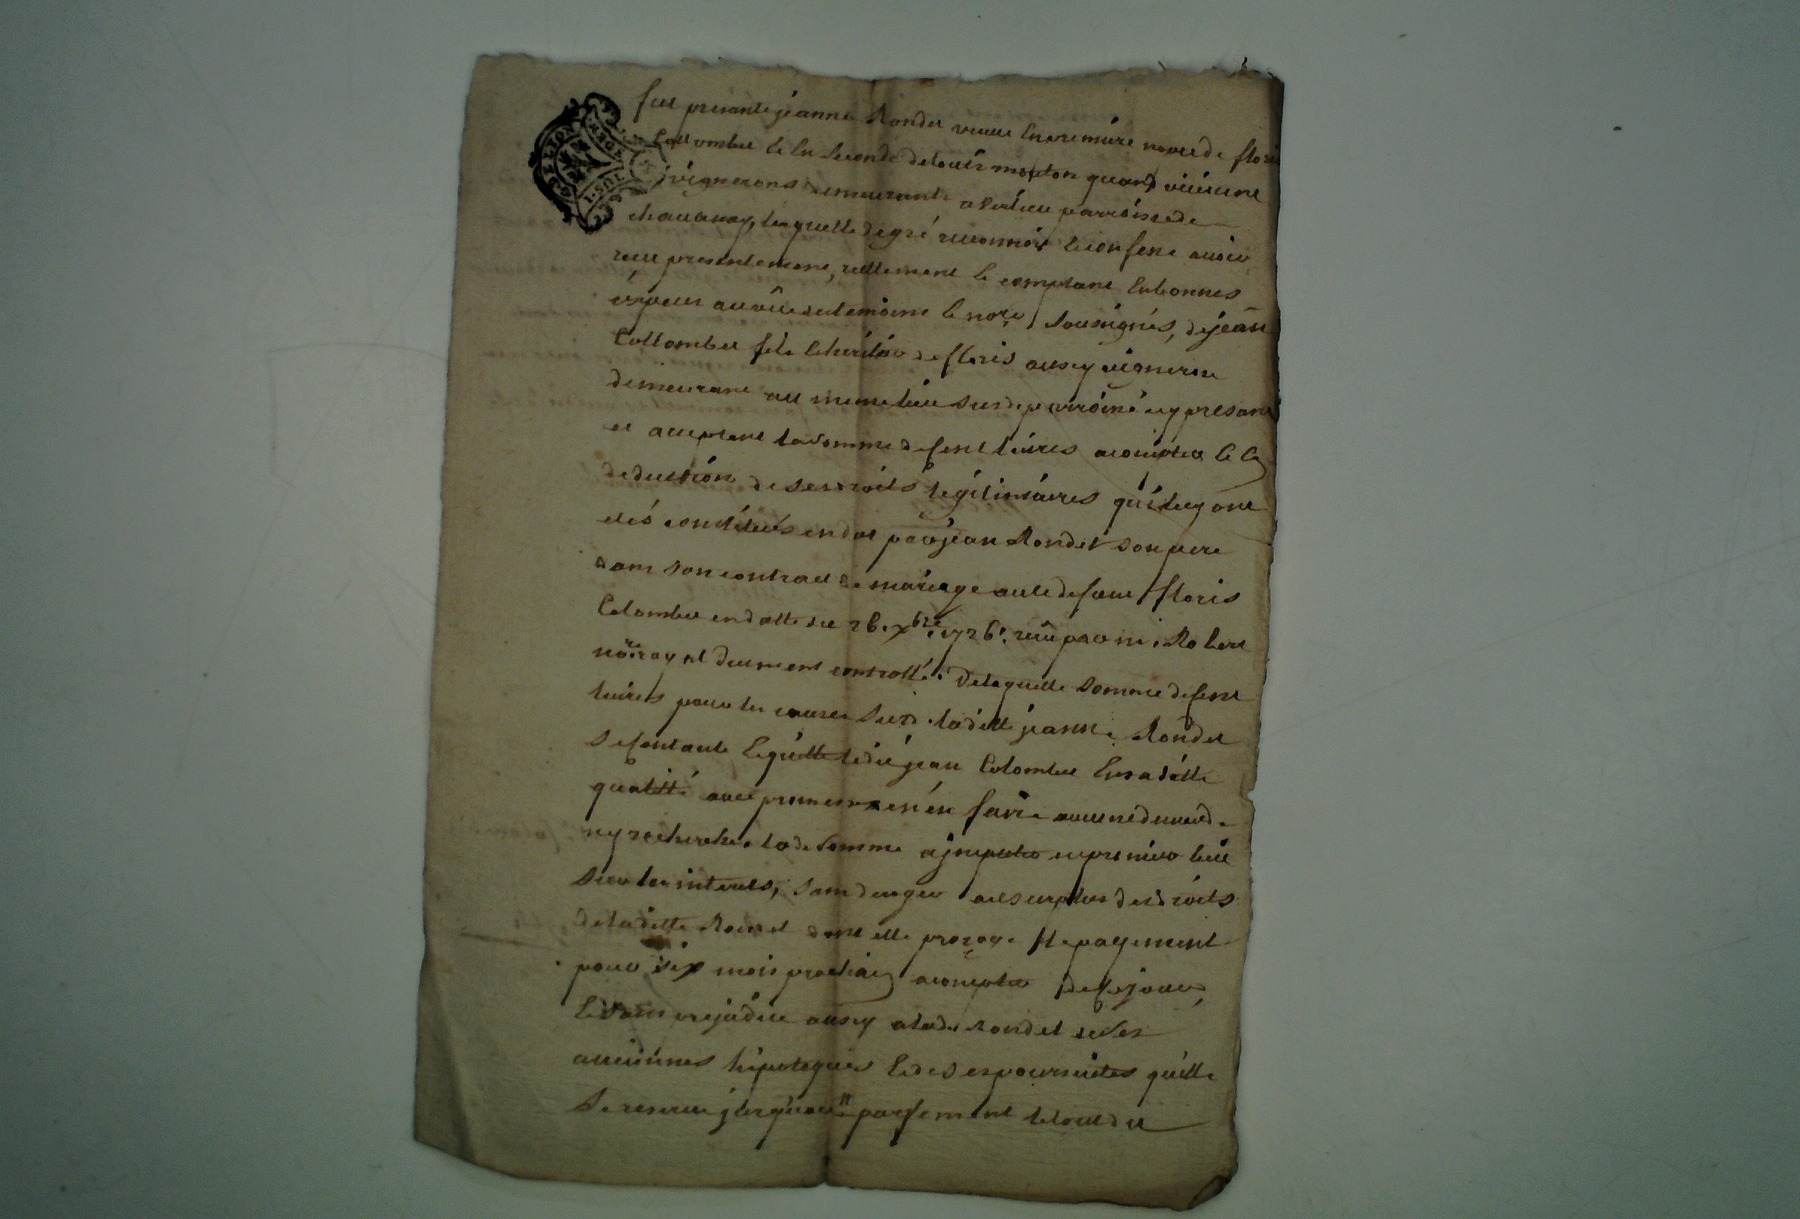 fut presante jeanne Rondet veuve en premiere noces de floris
Collombet & en seconde de louis mouton quand vivi
vignerons demeurants a Verlieu parroisse de
chavanay, laquelle de gré reconnoit & confesse avoir
receu presentement, reellement & comptant en bonnes
especes au vûe des temoins & no.re soussignés, de jean
Collombet fils & heritier de floris aussy vigneron
demeurant au meme lieu susd. parroisse icy presant
et acceptant la somme de cent livres acompte & en
deduction de ses droits legitimaires qui luy ont
etés constitués en dot par jean Rondet son pere
dans son contract de mariage avec le defunt floris
Colombet en datte du 26. xbre. 1726. reçu par m.e Robert
no.re royal duement controllé. De laquelle somme de cent
livres pour les causes susd. laditte jeanne Rondet
se contante & quitte ledit jean Colombet en saditte
qualitté avec promesse de n'en faire aucune demande
ny recherche. lad. somme a jmputer en premier lieu
sur les interets, sans deroger au surplus des droits
de laditte Rondet dont elle proroge le payement
pour six mois prochains a compter de ce jour,
& sans prejudice aussy a lad. Rondet de ses
anciennes hipoteques & de ses poursuittes qu'elle
se reserve jusqu'au parfement &